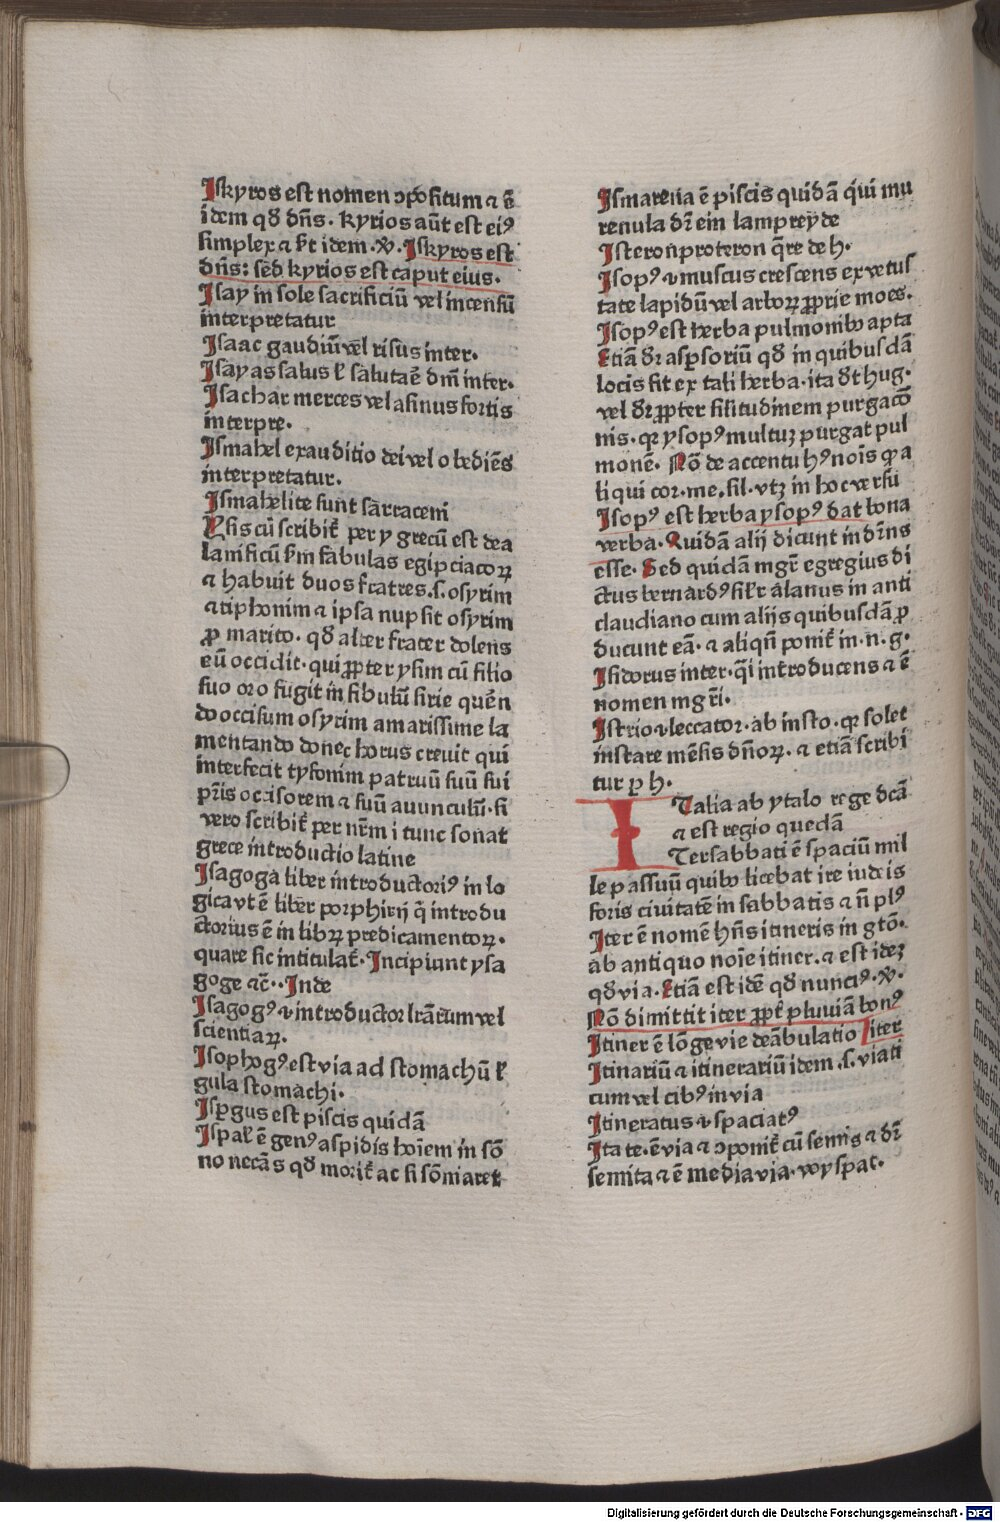 Iskyros est nomen ↄpositum ⁊ ē
idem qđ dn̄s. kyrios aūt est eiꝰ
simplex ⁊ st idem. v̄. Iskyros est
dn̄s: sed kyrios est caput eius.
Isay in sole sacrificiū vel incensū
interpretatur
Isaac gaudiū vel risus inter.
Isayas salus ł saluta ē dn̄i inter.
Isachar merces vel asinus fortis
interpre.
Ismahel exauditio dei vel obediēs
interpretatur.
Ismahelite sunt sarraceni
Ysis cū scribit᷑ per y grecū est dea
lanificū sm fabulas egipciacoꝝ
⁊ habuit duos fratres.s.osyrim
⁊ tiphonim ⁊ ipsa nupsit osyrim
ꝓ marito. qđ alter frater dolens
eū occidit. qui ꝓpter ysim cū filio
suo oro fugit in fibulū sirie quē n
do occisum osyrim amarissime la
mentando donec horus creuit qui
interfecit tyfonim patruū suū sui
pr̄is occisorem ⁊ suū auunculū. si
vero scribit᷑ per nr̄m i tunc sonat
grece introductio latine
Isagoga liber introductoriꝰ in lo
gica vt ē liber porphirij q̄ introdu
ctorius ē in libꝝ predicamentoꝝ.
quare sic intitulat᷑. Incipiunt ysa
goge ⁊c̄. Inde
Isagogꝰ ⁊ introductor lr̄arum vel
scientiaꝝ.
Isophogꝰ est via ad stomachū ł
gula stomachi.
Ispgus est piscis quidā
Ispał ē genꝰ aspidis hoīem in sō
no necās qđ morit᷑ ac si sōniaret
Ismarena ē piscis quidā q̇ui mu
renula dr̄ ein lampreyde
Isteronproteron q̄re de h.
Isopꝰ ⁊ muscus crescens ex vetus
tate lapidū vel arboꝝ ꝓprie moes.
Isopꝰ est herba pulmonibꝰ apta
Etiā dr̄ aspsoriū qđ in quibusdā
locis fit ex tali herba. ita dt hug.
vel dr̄ ꝓpter silitudinem purgacō
nis. qr ysopꝰ multuꝫ purgat pul
monē. Nō de accentu hꝰ nois ꝙ a
liqui cor.me.sil. vtꝫ in hoc versu
Isopꝰ est herba ysopꝰ dat bona
verba. Quidā alij dicunt indr̄ns
esse. Sed quidam mgr̄ egregius di
ctus bernardꝰ silr̄ alanus in anti
claudiano cum alijs quibusdā ꝓ
ducunt eā. ⁊ aliqn̄ ponit᷑ in.n.g.
Isidorus inter. q̄i introducens ⁊ ē
nomen mgr̄i.
Istrio ⁊ leccator. ab insto. qr solet
instare mēsis dn̄oꝝ. ⁊ etiā scribi
tur ꝑ h.
ITalia ab ytalo rege dcā
⁊ est regio quedā
Tersabbati ē spaciū mil
le passuū quibꝰ licebat ire iudeis
foris ciuitatē in sabbatis ⁊ n̄ plꝰ
Iter ē nomē hn̄s itineris in gtō.
ab antiquo noīe itiner. ⁊ est ideꝫ
qđ via. Etiā est idē qđ nunciꝰ. v̄.
Nō dimittit iter ꝓpt᷑ pluuiā bonꝰ iter
Itiner ē lōge vie deābulatio
Itinariū ⁊ itinerariū idem.s.viati
cum vel cibꝰ in via
Itineratus ⁊ spaciatꝰ
Itate. ē via ⁊ ↄponit᷑ cū semis ⁊ dr̄
semita ⁊ ē media via. voy spat.
Digitalisierung gefördert durch die Deutsche Forschungsgemeinschaft - DFG